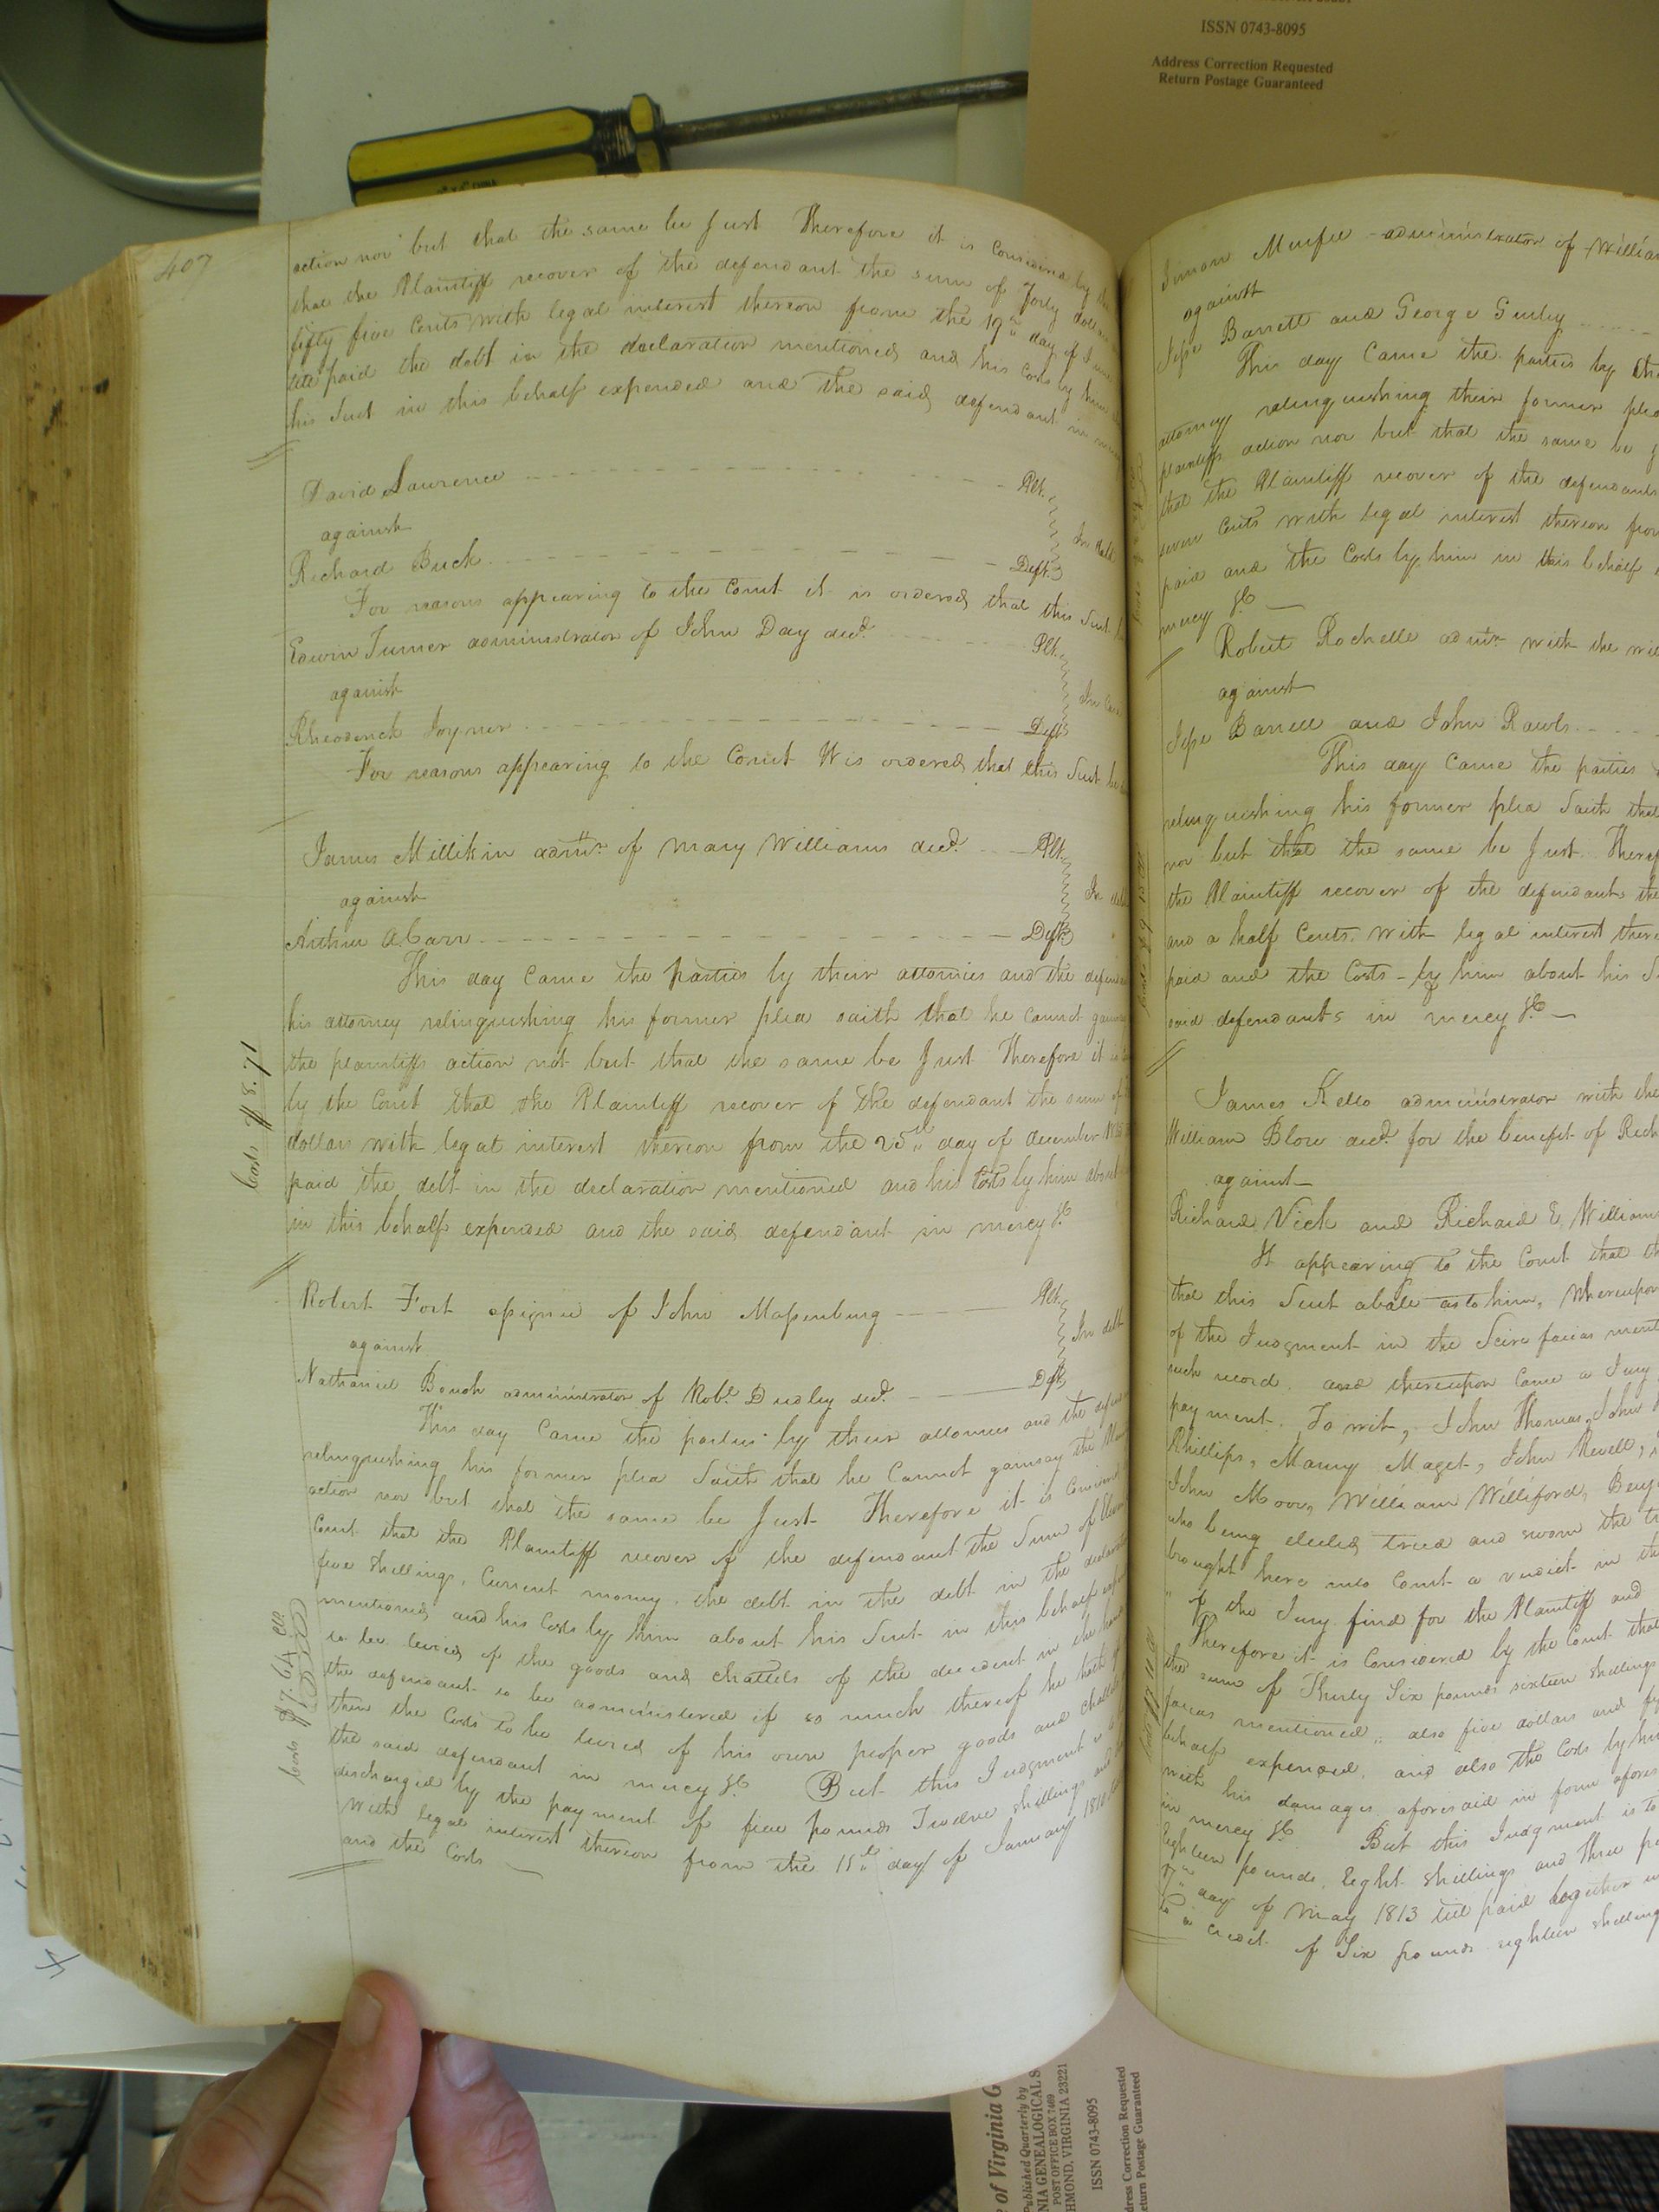 ISSN 0743-8095
Address Correction Requested
Return Postage Guaranteed
407
action nor but that the same be Just Therefore it is Considered by the
that the Plaintiff recover of the defendant the sum of Forty dollars
fifty five Cents with legal interest thereon from the 19th day of June
paid the debt in the declaration mentioned and his Costs by him
his Suit in this behalf expended and the said defendant in
David Lawrence Plt.
against
Richard Buck Deft.
For reasons appearing to the Court it is ordered that this Suit
Edwin Turner administrator of John Day decd. Plt.
against
Rhoderick Joyner Deft
For reasons appearing to the Court it is ordered that this Suit be
James Millikin admr. of Mary Williams decd. Plt.
against In debt
Arthur A Carr Deft
This day Came the parties by their attornies and the
his attorney relinquishing his former plea saith that he cannot
the plaintiffs action not but that the same be Just Therefore it is
by the Court that the Plaintiff recover of the defendant the sum of
dollars with legal interest thereon from the 25th day of december
paid the debt in the declaration mentioned and his Costs by him about
in this behalf expended and the said defendant in mercy &c
Costs $8.71
Robert Fort assignee of John Massenburg Plt.
against In debt
Nathaniel Bough administrator of Robt. Dudley decd. Deft
This day Came the parties by their attornies and the
relinquishing his former plea Saith that he Cannot gainsay the
action nor but that the same be Just Therefore it is
Court that the Plaintiff recover of the defendant the Sum of
five shillings, Current money, the debt in the debt in the
mentioned and his Costs by him about his Suit in this behalf
to be levied of the goods and chattels of the decedent in the
the defendant to be administered if so much thereof he hath
then the Costs to be levied of his own proper goods and
the said defendant in mercy &c But this Judgment is
discharged by the payment of five pounds Twelve shillings and
with legal interest thereon from the 15th day of January 1810
and the Costs
Costs $7.64
Simon Murfee administrator of William
against
Jesse Barrett and George Gurley
This day Came the parties by
attorney relinquishing their former plea
plaintiffs action nor but that the same be
that the Plaintiff recover of the defendants
seven Cents with legal interest thereon from
paid and the Costs by him in this behalf
mercy &c
Robert Rochelle admr. with the will
against
Jesse Barrett and John Rawls
This day Came the parties
relinquishing his former plea Saith that
nor but that the same be Just. Therefore
the Plaintiff recover of the defendants the
and a half Cents. With legal interest
paid and the Costs by him about his
said defendants in mercy &c
James Kello administrator with the
William Blow decd. for the benefit of
against
Richard Vick and Richard E. Williams
It appearing to the Court that
that this Suit abate as to him, Whereupon
of the Judgment in the Scire facias
such record, and thereupon Came a Jury
payment. To wit, John Thomas, John
Phillips, Manny Maget, John Revell,
John Moore, William Williford,
who being elected tried and sworn the
brought here into Court a verdict in
of the Jury find for the Plaintiff and
Therefore it is Considered by the Court that
the sum of Thirty Six pounds sixteen shillings
facias mentioned, also five dollars and
behalf expended, and also the Costs by
with his damages aforesaid in form
in mercy &c But this Judgment is to
Eighteen pounds, Eight shillings and three
day of May 1813 till paid together
to a credit of Six pounds eighteen shillings
of Virginia
Published Quarterly by
NIA GENEALOGICAL S
POST OFFICE BOX 7469
HMOND, VIRGINIA 23221
ISSN 0743-8095
dress Correction Requested
eturn Postage Guaranteed